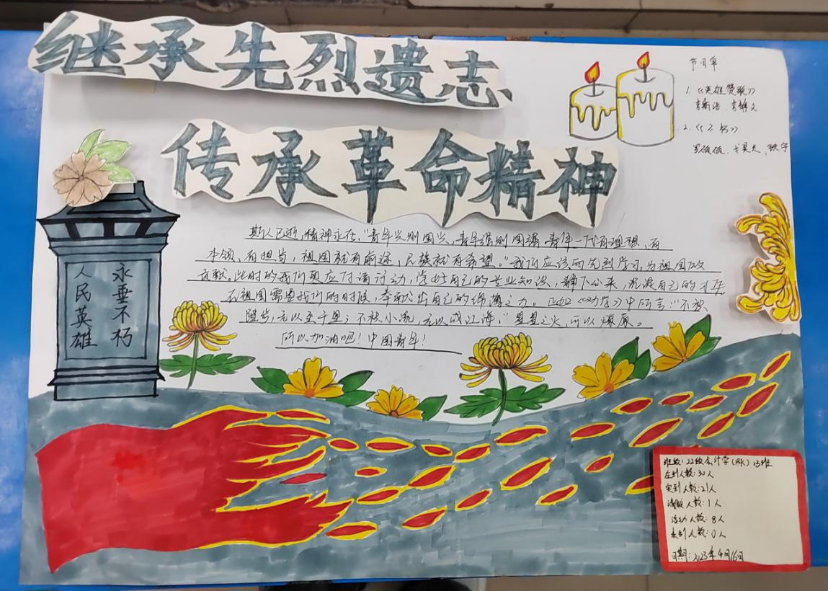 继承先烈遗志
传承革命精神
节目单
1.《英雄赞歌》
2.
人民英雄
永垂不朽
斯人已逝,精神永在,"青年兴则国兴,青年强则国强,青年一代有理想,有
本领,有担当,祖国就有前途,民族就有希望。"我们应该向先烈学习,为祖国做
贡献,此时的我们更应付诸行动,学好自己的专业知识,静下心来,
在祖国需要我们的时候,奉献出自己的绵薄之力。正如《劝学》中所言:"不积
跬步,无以至千里;不积小流,无以成江海,"星星之火,可以燎原。
所以加油吧!中国青年!
班级:22级会计学(师)13班
应到人数:30人
实到人数:21人
请假人数:1人
活动人数:8人
未到人数:0人
日期:2023年4月16日